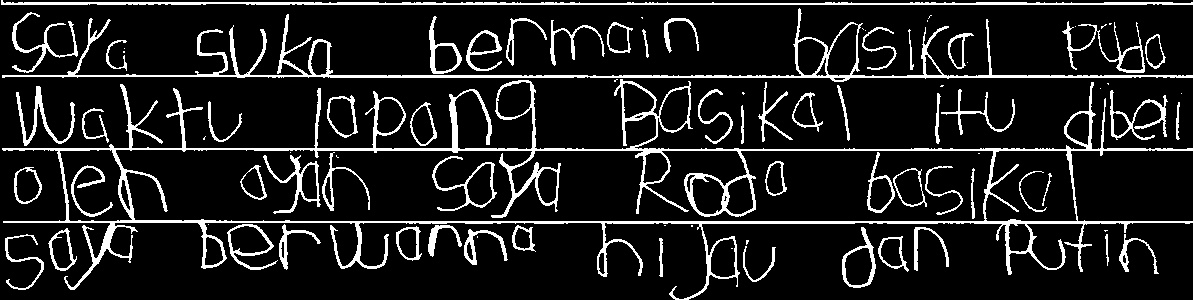 saya suka bermain basikal pada
Waktu lapang Basikal itu dibeli
oleh ayah saya Roda basikal
saya berwanna hijau dan Putih